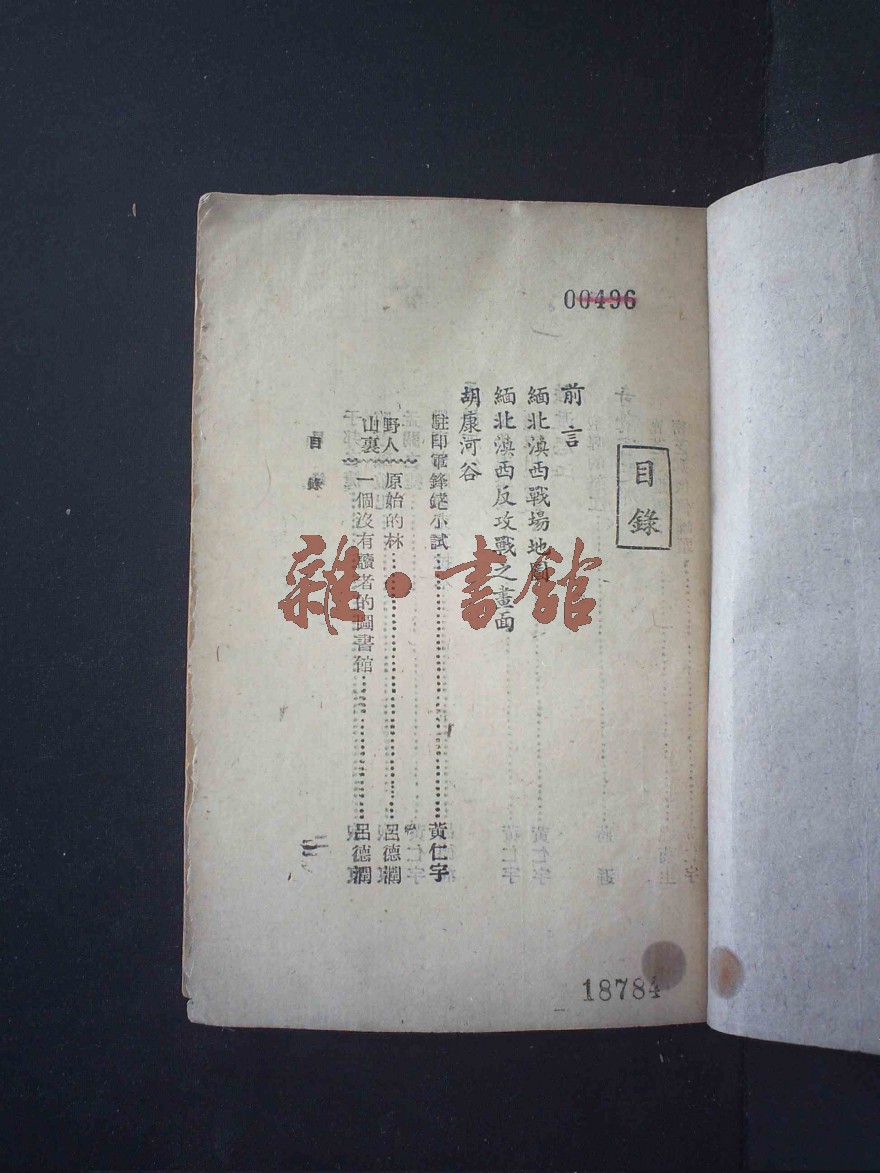 00496
目錄
前言
緬北滇西戰場地圖
緬北滇西反攻戰之畫面
胡康河谷
駐印軍鋒鋩小試……黃仁宇
野人山裏
原始的林……呂德潤
一個沒有讀者的圖書館……呂德潤
目錄
一
18784
雜·書館